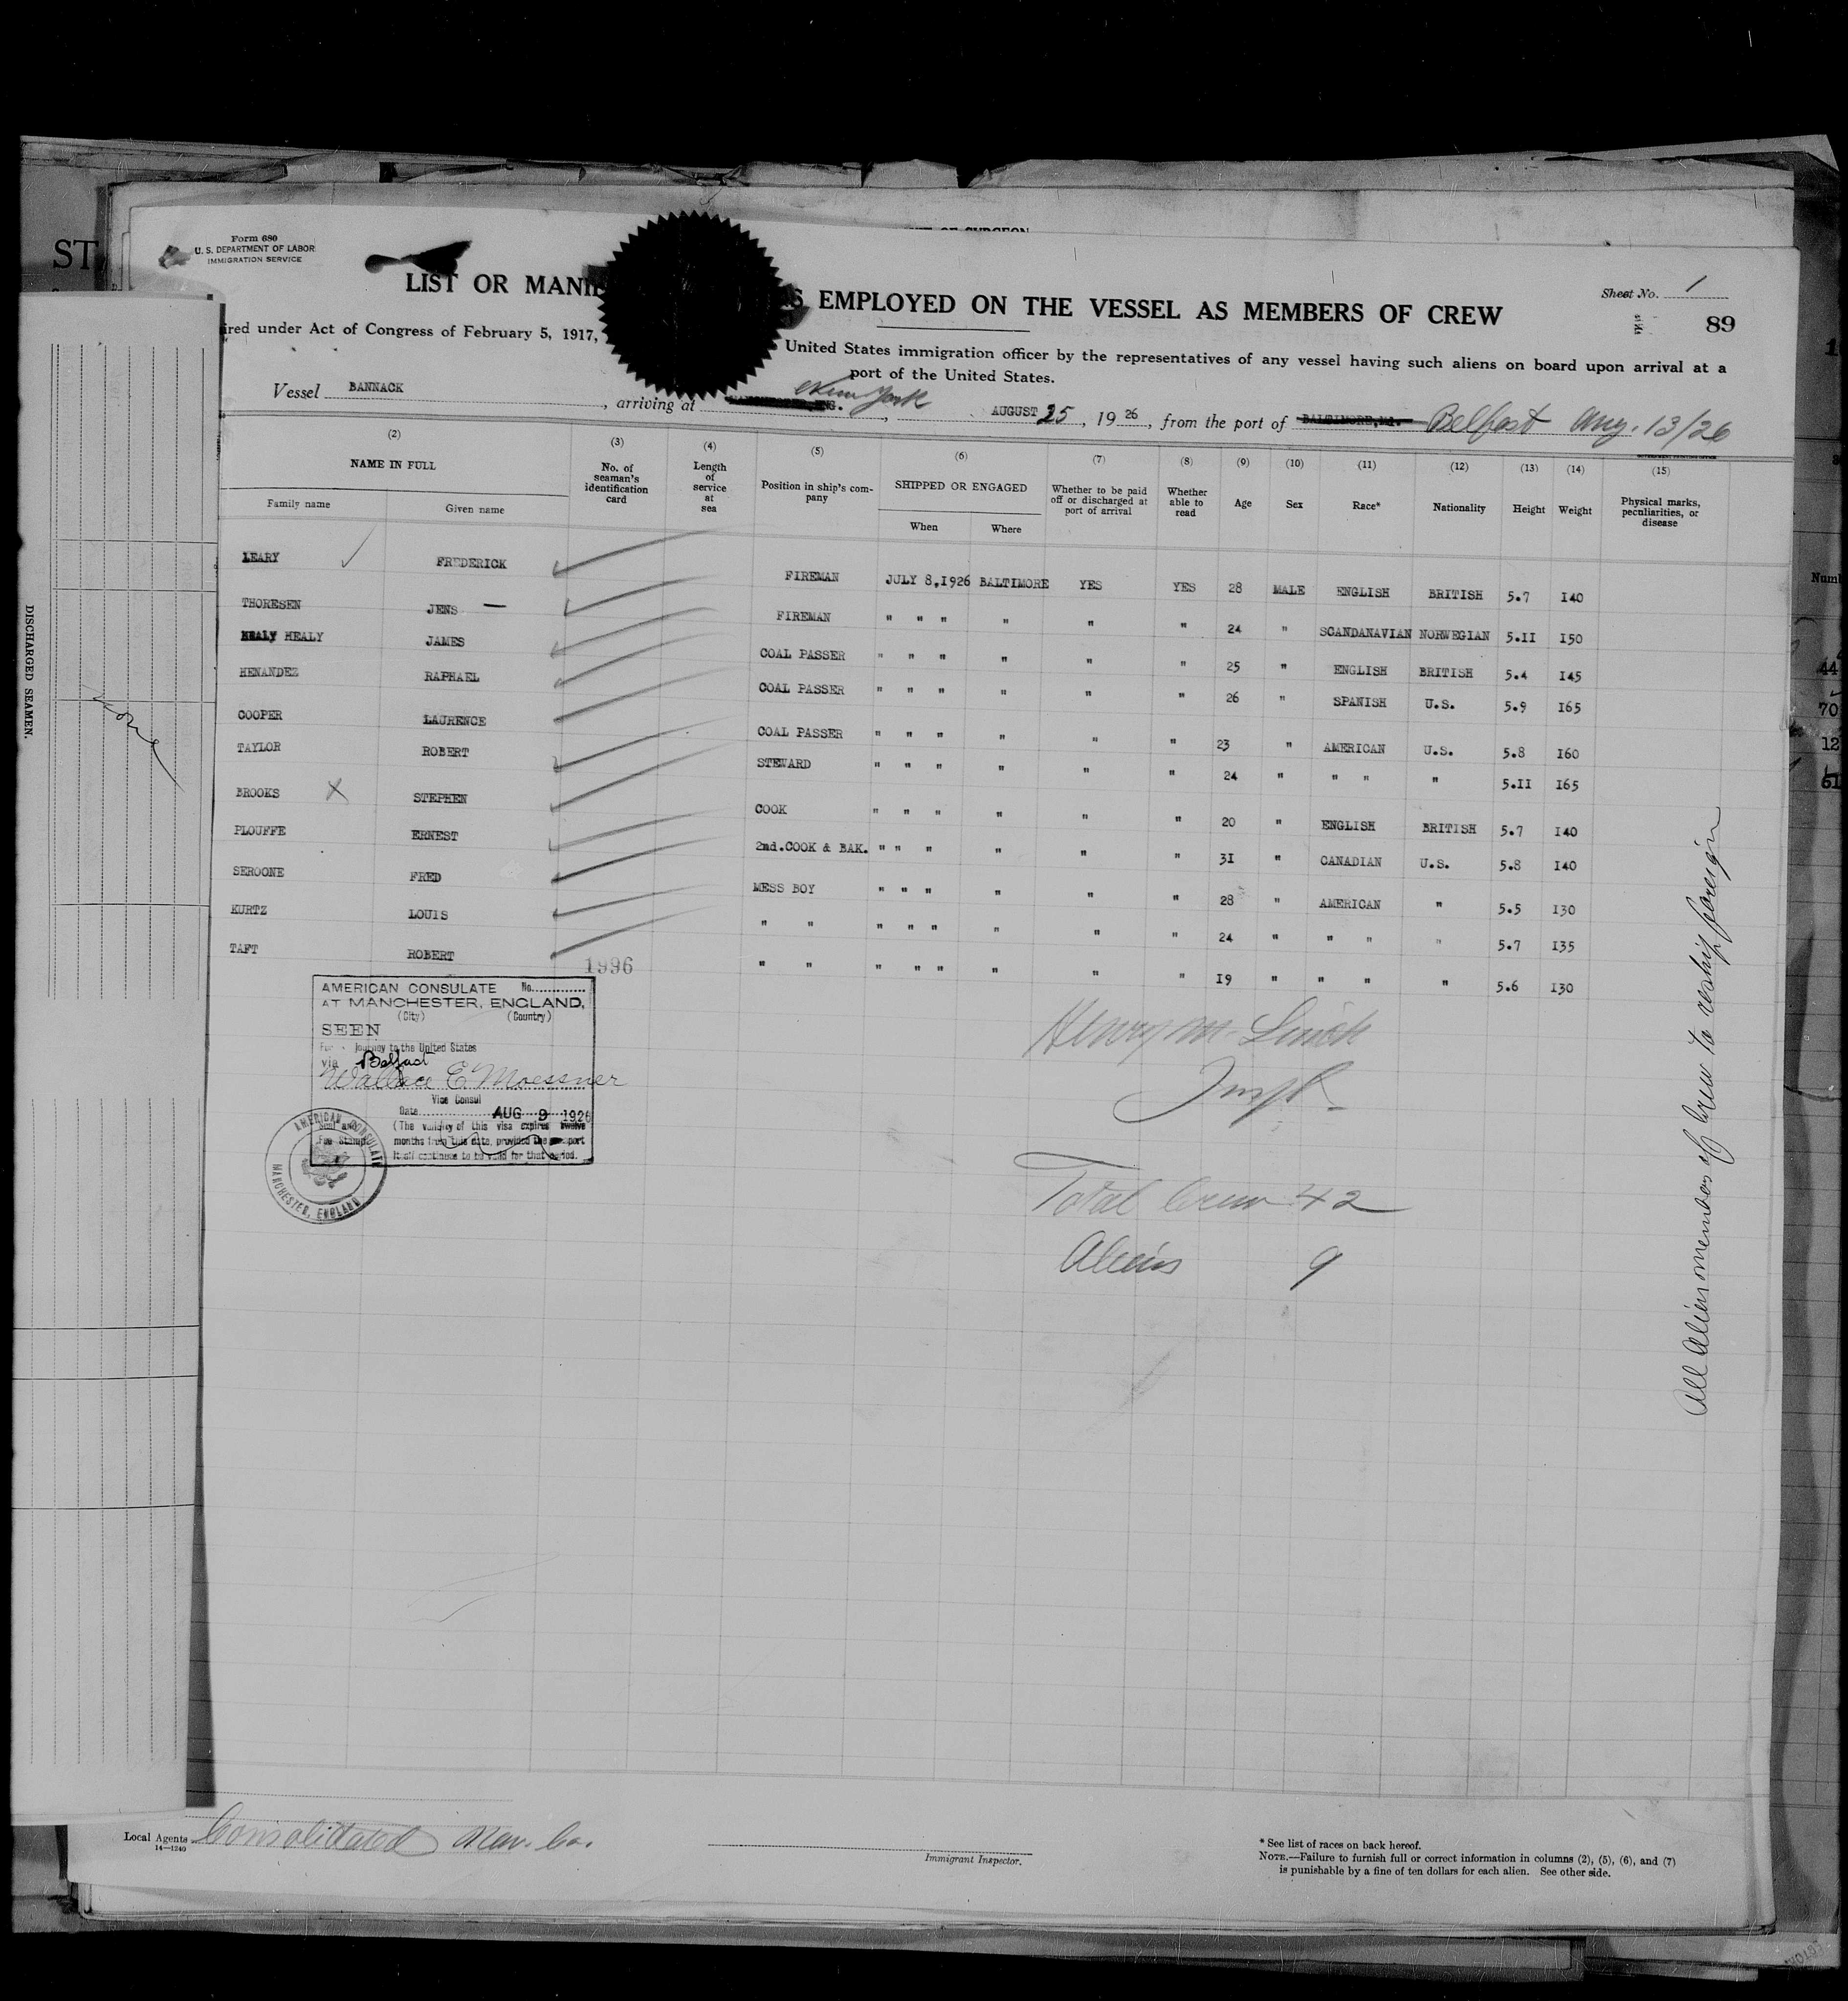 Form 680
U. S. DEPARTMENT OF LABOR
IMMIGRATION SERVICE
ST
LIST OR MANI S EMPLOYED ON THE VESSEL AS MEMBERS OF CREW
Sheet No. 1
89
ired under Act of Congress of February 5, 1917, United States immigration officer by the representatives of any vessel having such aliens on board upon arrival at a
port of the United States.
Vessel BANNACK, arriving at New York, AUGUST 25, 19 26, from the port of BALTIMORE,Md. Belfast Aug. 13/26
(2) (3) (4) (5) (6) (7) (8) (9) (10) (11) (12) (13) (14) (15)
NAME IN FULL
Family name Given name
No. of seaman's identification card
Length of service at sea
Position in ship's company
SHIPPED OR ENGAGED
When Where
Whether to be paid off or discharged at port of arrival
Whether able to read
Age Sex Race* Nationality Height Weight
Physical marks, peculiarities, or disease
LEARY FREDERICK FIREMAN JULY 8,1926 BALTIMORE YES YES 28 MALE ENGLISH BRITISH 5.7 I40
THORESEN JENS — FIREMAN " " " " " " 24 " SCANDANAVIAN NORWEGIAN 5.II I50
HEALY JAMES COAL PASSER " " " " " " 25 " ENGLISH BRITISH 5.4 I45
HENANDEZ RAPHAEL COAL PASSER " " " " " " 26 " SPANISH U.S. 5.9 I65
COOPER LAURENCE COAL PASSER " " " " " " 23 " AMERICAN U.S. 5.8 I60
TAYLOR ROBERT STEWARD " " " " " " 24 " " " " 5.II I65
BROOKS X STEPHEN COOK " " " " " " 20 " ENGLISH BRITISH 5.7 I40
PLOUFFE ERNEST 2nd.COOK & BAK. " " " " " " 3I " CANADIAN U.S. 5.8 I40
SEROONE FRED MESS BOY " " " " " " 28 " AMERICAN " 5.5 I30
KURTZ LOUIS " " " " " " " " 24 " " " " 5.7 I35
TAFT ROBERT " " " " " " " " I9 " " " " 5.6 I30
1996
AMERICAN CONSULATE No.
AT MANCHESTER, ENGLAND,
(City) (Country)
SEEN
For Journey to the United States
via Belfast
Wallace E Moessner
Vice Consul
Date AUG 9 1926
Seal and Fee Stamp.
(The validity of this visa expires twelve
months from this date, provided the passport
itself continues to be valid for that period.
AMERICAN CONSULATE
MANCHESTER, ENGLAND
Henry M. Smith
Insp.
Total Crew 42
Aliens 9
All Alien members of crew to reship foreign
DISCHARGED SEAMEN.
None
Numb
44
70
12
61
Local Agents Consolidated Nav. Co.
14—1240
Immigrant Inspector.
* See list of races on back hereof.
NOTE.—Failure to furnish full or correct information in columns (2), (5), (6), and (7)
is punishable by a fine of ten dollars for each alien. See other side.